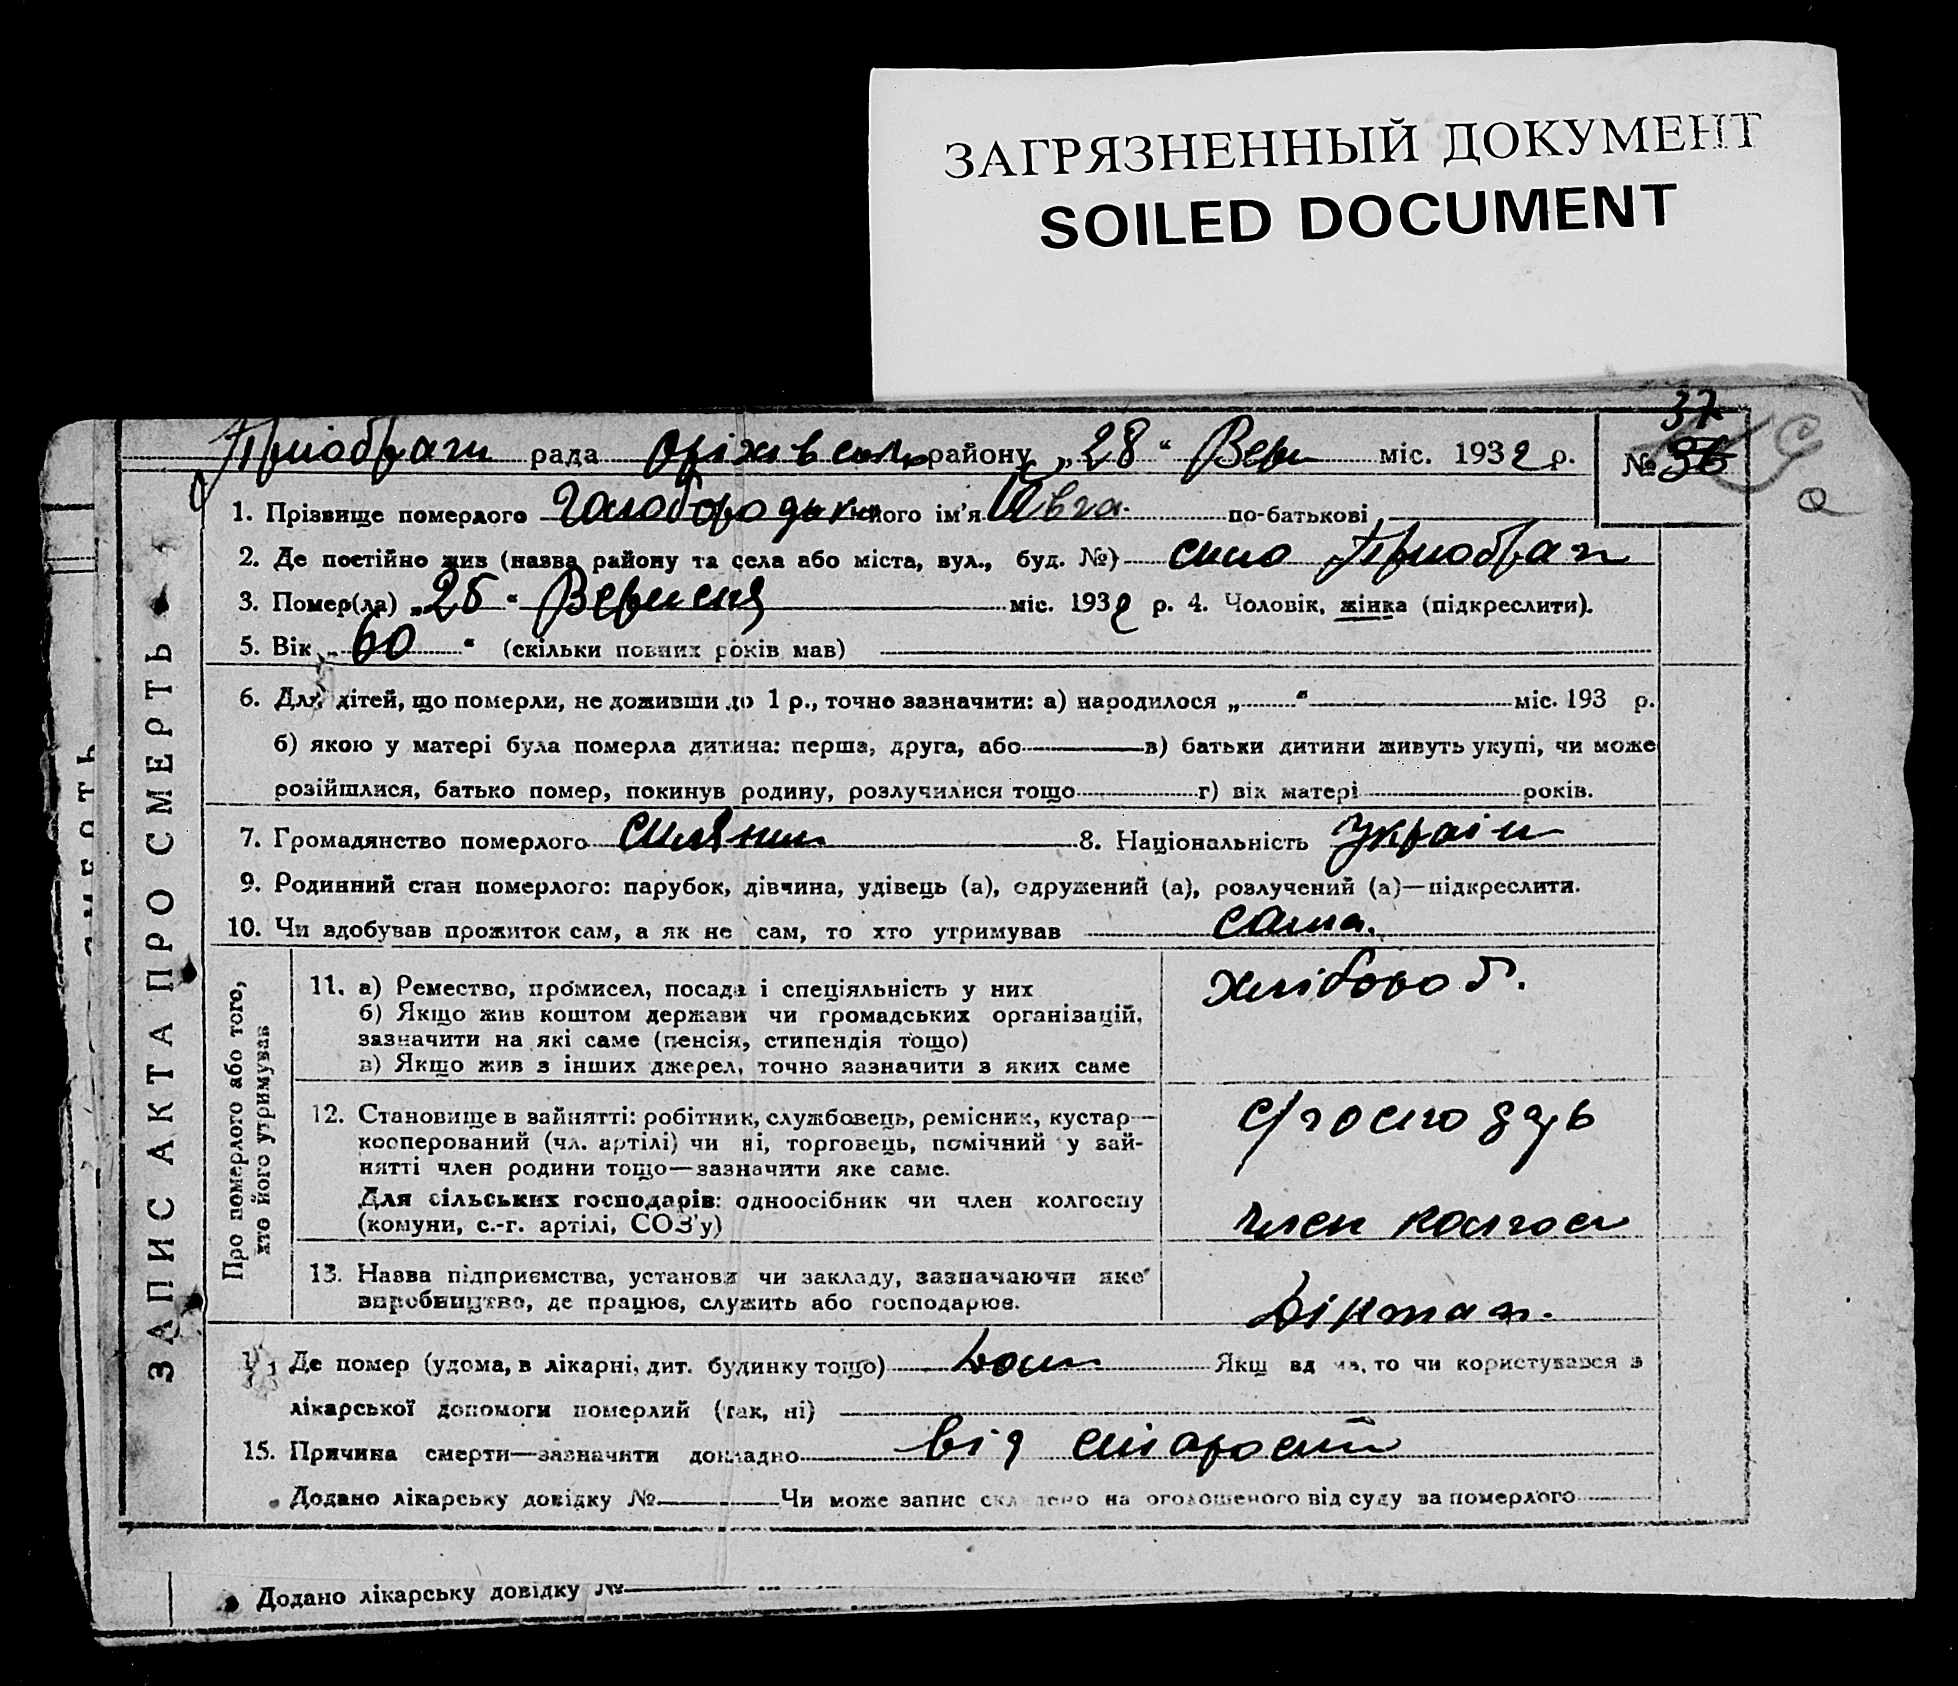 ЗАГРЯЗНЕННЫЙ ДОКУМЕНТ
SOILED DOCUMENT
37
Приображ рада Оріхівськ району „28“ Вер міс. 1932 р. № 36
1. Прізвище померлого Голобородько його ім'я Ивга. по-батькові
2. Де постійно жив (назва району та села або міста, вул., буд. №) село
3. Помер(ла) „25“ Вересня міс. 1932 р. 4. Чоловік, жінка (підкреслити).
5. Вік „60“ (скільки повних років мав)
6. Для дітей, що померли, не доживши до 1 р., точно зазначити: а) народилося „ “ міс. 193 р.
б) якою у матері була померла дитина: перша, друга, або в) батьки дитини живуть укупі, чи може
розійшлися, батько помер, покинув родину, розлучилися тощо г) вік матері років.
7. Громадянство померлого 8. Національність Україн
9. Родинний стан померлого: парубок, дівчина, удівець (а), одружений (а), розлучений (а)—підкреслити.
10. Чи здобував прожиток сам, а як не сам, то хто утримував сама.
ЗАПИС АКТА ПРО СМЕРТЬ
Про померлого або того,
хто його утримував
11. а) Ремество, промисел, посада і спеціяльність у них
б) Якщо жив коштом держави чи громадських організацій,
зазначити на які саме (пенсія, стипендія тощо)
в) Якщо жив з інших джерел, точно зазначити з яких саме
хлібороб.
12. Становище в зайнятті: робітник, службовець, ремісник, кустар—
косперований (чл. артілі) чи ні, торговець, помічний у зай-
нятті член родини тощо—зазначити яке саме.
с/господар
Для сільських господарів: одноосібник чи член колгоспу
(комуни, с.-г. артілі, СОЗ'у)
член колгос
13. Назва підприємства, установи чи закладу, зазначаючи яке
виробництво, де працює, служить або господарює.
Де помер (удома, в лікарні, дит. будинку тощо) Дом Якщ вд ма, то чи користувався з
лікарської допомоги померлий (так, ні)
15. Причина смерти—зазначити докладно від старости
Додано лікарську довідку № Чи може запис складено на оголошеного від суду за померлого
Додано лікарську довідку №